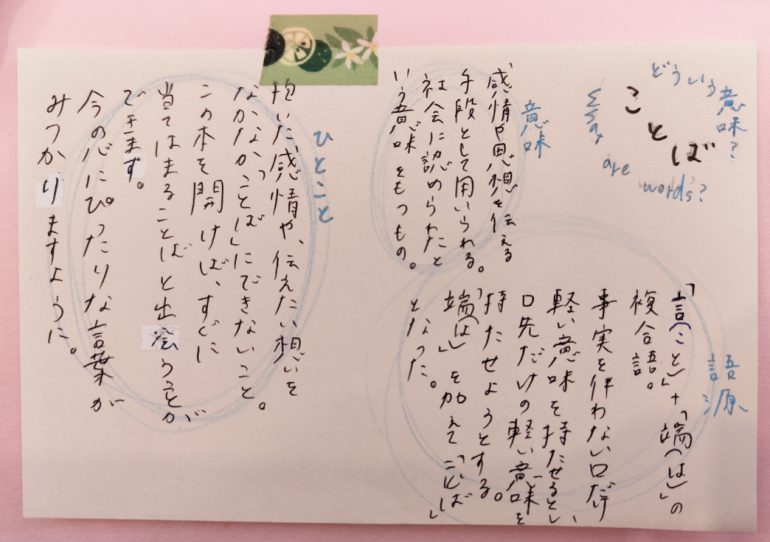 どういう意味?
ことば
are words?
意味
感情や思想を伝える
手段として用いられる。
社会に認められたと
いう意味をもつもの。
語源
「言(こと)」+「端(は)」の
複合語。
事実を伴わない口だけ
軽い意味を持たせるとい、
口先だけの軽い意味を
持たせようとする。
「端(は)」を加えて「ことば」
となった。
ひとこと
抱いた感情や、伝えたい想いを
なかなか「ことば」にできないこと。
この本を開けば、すぐに
当てはまることばと出会うことが
できます。
今の心にぴったりな言葉が
みつかりますように。